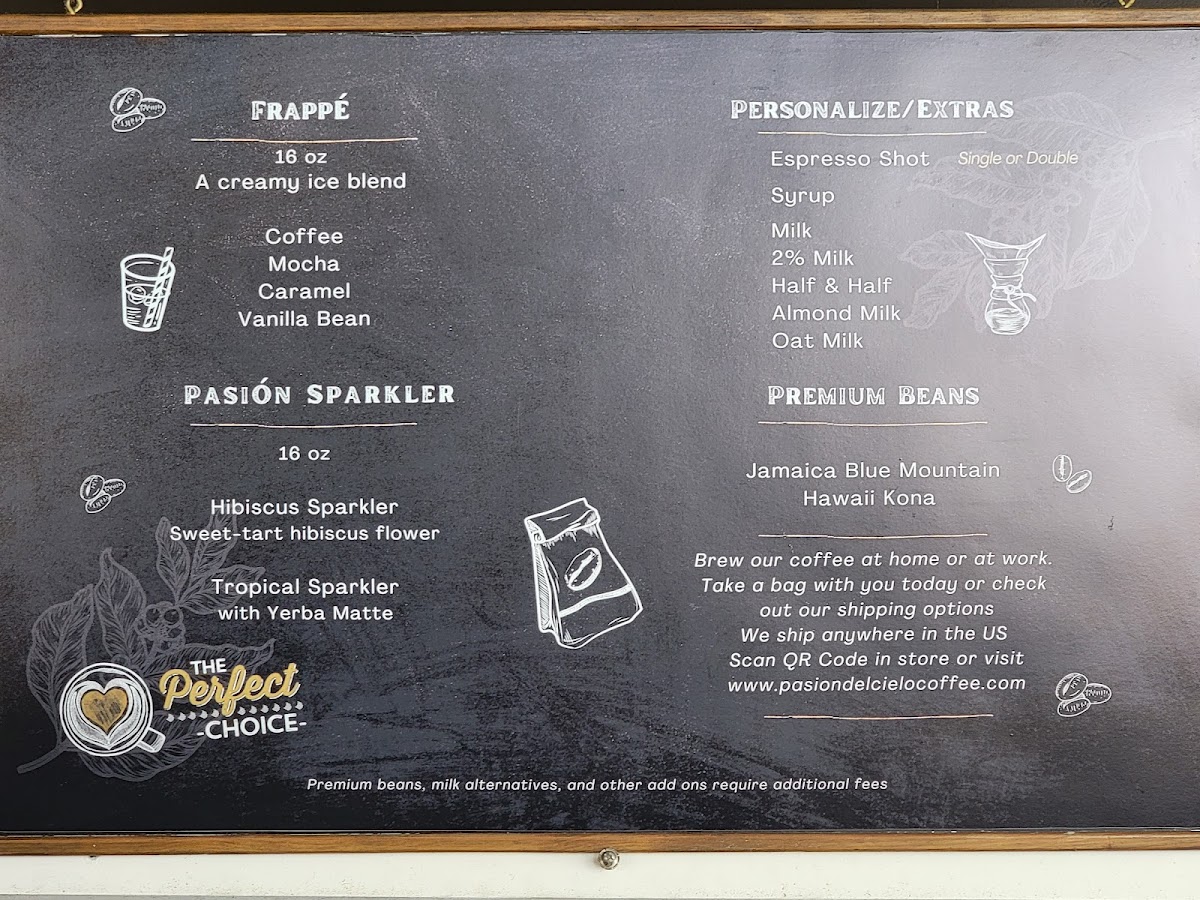 FRAPPÉ
16 oz
A creamy ice blend
Coffee
Mocha
Caramel
Vanilla Bean
PASIÓN SPARKLER
16 oz
Hibiscus Sparkler
Sweet-tart hibiscus flower
Tropical Sparkler
with Yerba Matte
THE
Perfect
-CHOICE-
PERSONALIZE/EXTRAS
Espresso Shot Single or Double
Syrup
Milk
2% Milk
Half & Half
Almond Milk
Oat Milk
PREMIUM BEANS
Jamaica Blue Mountain
Hawaii Kona
Brew our coffee at home or at work.
Take a bag with you today or check
out our shipping options
We ship anywhere in the US
Scan QR Code in store or visit
www.pasiondelcielocoffee.com
Premium beans, milk alternatives, and other add ons require additional fees